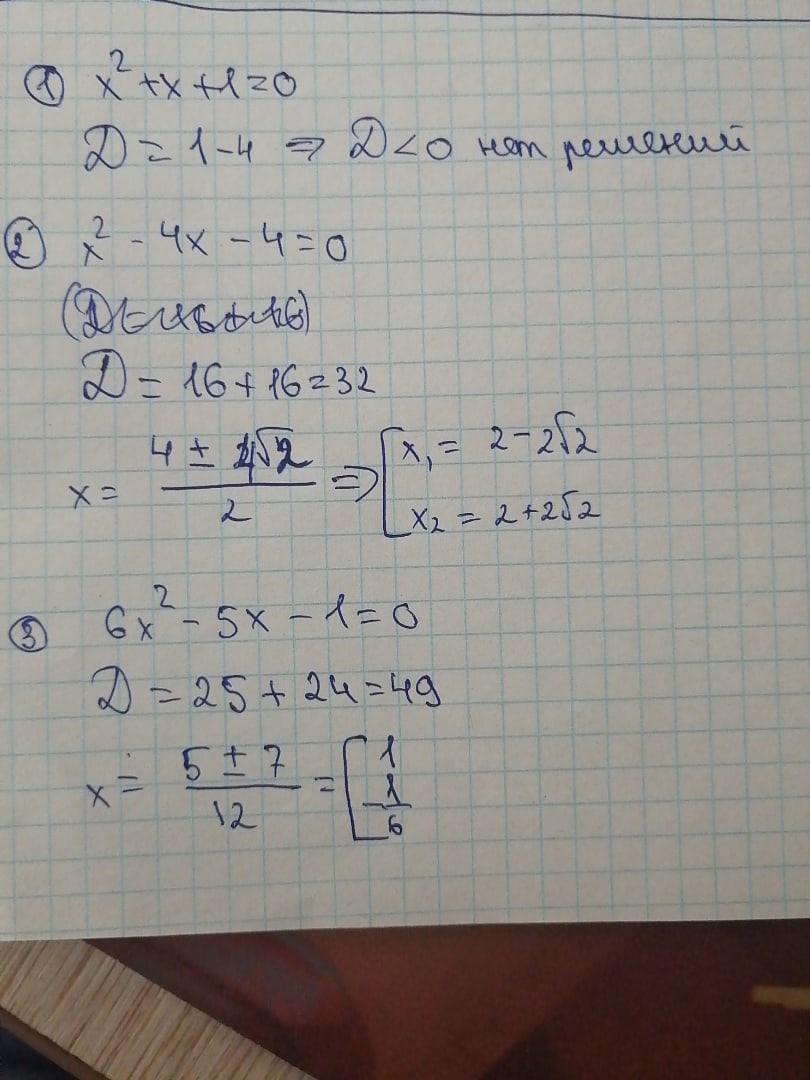 ① x² + x + 1 = 0
D = 1 - 4 ⇒ D < 0 нет решений
② x² - 4x - 4 = 0
D = 16 + 16 = 32
x = (4 ± 4√2)/2 ⇒ [x₁ = 2 - 2√2
x₂ = 2 + 2√2
③ 6x² - 5x - 1 = 0
D = 25 + 24 = 49
x = (5 ± 7)/12 = [1
-1/6